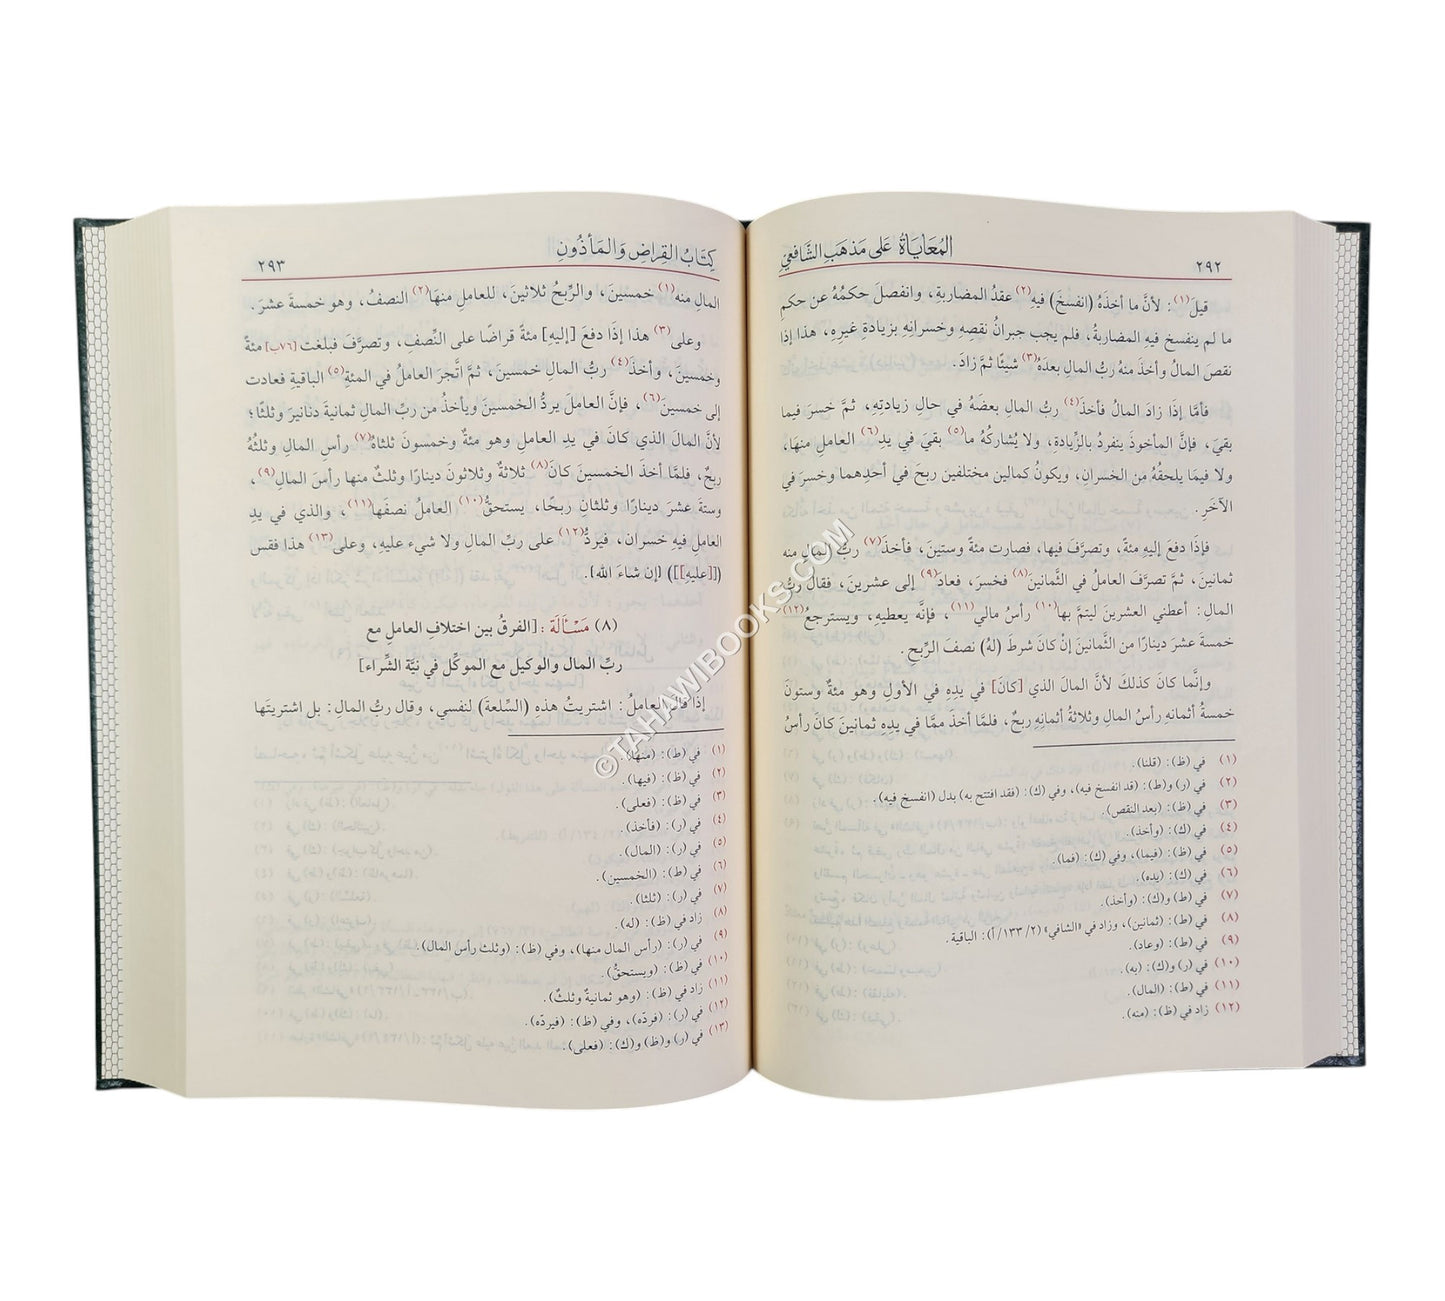 المعاياة على مذهب الشافعي
٢٩٢
قيلَ(١): لأنَّ ما أخذَهُ (انفسخَ) فيهِ(٢) عقدُ المضاربةِ، وانفصلَ حكمُهُ عن حكمِ
ما لم ينفسخ فيهِ المضاربةُ، فلم يجب جبرانُ نقصِهِ وخسرانِهِ بزيادةِ غيرِهِ، هذا إذا
نقصَ المالُ وأخذَ منهُ ربُّ المالِ بعدَهُ(٣) شيئًا ثمَّ زادَ.
فأمَّا إذَا زادَ المالُ فأخذَ(٤) ربُّ المالِ بعضَهُ في حالِ زيادتِهِ، ثمَّ خسرَ فيما
بقيَ، فإنَّ المأخوذَ ينفردُ بالزِّيادةِ، ولا يُشاركُهُ ما(٥) بقيَ في يدِ(٦) العاملِ منهَا،
ولا فيمَا يلحقُهُ مِن الخسرانِ، ويكونُ كمالينِ مختلفينِ ربحَ في أحدِهما وخسرَ في
الآخَرِ.
فإذَا دفعَ إليهِ مئةً، وتصرَّفَ فيها، فصارت مئةً وستينَ، فأخذَ(٧) ربُّ المالِ منه
ثمانينَ، ثمَّ تصرَّفَ العاملُ في الثَّمانينَ(٨) فخسرَ، فعادَ(٩) إلى عشرينَ، فقالَ ربُّ
المالِ: أعطني العشرينَ ليتمَّ بها(١٠) رأسُ مالي(١١)، فإنَّه يعطيهِ، ويسترجعُ(١٢)
خمسةَ عشرَ دينارًا من الثَّمانينَ إنْ كانَ شرطَ (لهُ) نصفَ الرِّبحِ.
وإنَّما كانَ كذلكَ لأنَّ المالَ الذي [كانَ] في يدِهِ في الأولِ وهو مئةٌ وستونَ
خمسةُ أثمانِهِ رأسُ المالِ وثلاثةُ أثمانِهِ ربحٌ، فلمَّا أخذَ ممَّا في يدِهِ ثمانينَ كانَ رأسُ
(١) في (ظ): (قلنا).
(٢) في (ر) و(ط): (قد انفسخ فيه)، وفي (ك): (فقد افتتح به) بدل (انفسخ فيه).
(٣) في (ظ): (بعد النقص).
(٤) في (ك): (وأخذ).
(٥) في (ظ): (فيما)، وفي (ك): (فما).
(٦) في (ك): (يده).
(٧) في (ط) و(ك): (وأخذ).
(٨) في (ط): (ثمانين)، وزاد في «الشافي» (٢/ ١٣٣/ أ): الباقية.
(٩) في (ط): (وعاد).
(١٠) في (ر) و(ك): (به).
(١١) في (ط): (المال).
(١٢) زاد في (ظ): (منه).
كتاب القراض والمأذون
٢٩٣
المالِ منه(١) خمسينَ، والرِّبحُ ثلاثينَ، للعاملِ منهَا(٢) النصفُ، وهو خمسةَ عشرَ.
وعلى(٣) هذا إذَا دفعَ [إليهِ] مئةً قراضًا على النِّصفِ، وتصرَّفَ فبلغت [٧٦ب] مئةً
وخمسينَ، وأخذَ(٤) ربُّ المالِ خمسينَ، ثمَّ اتَّجرَ العاملُ في المئةِ(٥) الباقيةِ فعادت
إلى خمسينَ(٦)، فإنَّ العاملَ يردُّ الخمسينَ ويأخذُ من ربِّ المالِ ثمانيةَ دنانيرَ وثلثًا؛
لأنَّ المالَ الذي كانَ في يدِ العاملِ وهو مئةٌ وخمسونَ ثلثاهُ(٧) رأسُ المالِ وثلثُهُ
ربحٌ، فلمَّا أخذَ الخمسينَ كانَ(٨) ثلاثةٌ وثلاثونَ دينارًا وثلثٌ منها رأسَ المالِ(٩)،
وستةَ عشرَ دينارًا وثلثانِ ربحًا، يستحقُّ(١٠) العاملُ نصفَها(١١)، والذي في يدِ
العاملِ فيهِ خسران، فيردُّ(١٢) على ربِّ المالِ ولا شيء عليهِ، وعلى(١٣) هذا فقس
([[عليهِ]]) [إن شاءَ الله].
(٨) مَسْألَة: [الفرقُ بين اختلافِ العاملِ مع
ربِّ المال والوكيلِ مع الموكِّل في نيَّة الشِّراء]
إذَا قالَ العاملُ: اشتريتُ هذه (السِّلعةَ) لنفسي، وقال ربُّ المالِ: بل اشتريتَها
(١) في (ط): (منها).
(٢) في (ظ): (فيها).
(٣) في (ظ): (فعلى).
(٤) في (ر): (فأخذ).
(٥) في (ر): (المال).
(٦) في (ط): (الخمسين).
(٧) في (ر): (ثلثا).
(٨) زاد في (ظ): (له).
(٩) في (ر): (رأس المال منها)، وفي (ظ): (وثلث رأس المال).
(١٠) في (ظ): (ويستحقُّ).
(١١) زاد في (ظ): (وهو ثمانيةٌ وثلثٌ).
(١٢) في (ر): (فردّه)، وفي (ظ): (فيردّه).
(١٣) في (ر) و(ظ) و(ك): (فعلى).
©TAHAWIBOOKS.COM